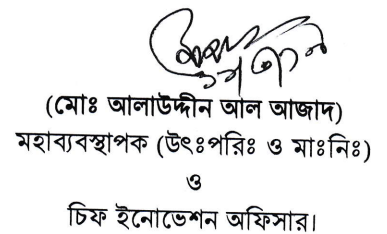 (মোঃ আলাউদ্দীন আল আজাদ)
মহাব্যবস্থাপক (উৎঃপরিঃ ও মাঃনিঃ)
ও
চিফ ইনোভেশন অফিসার।